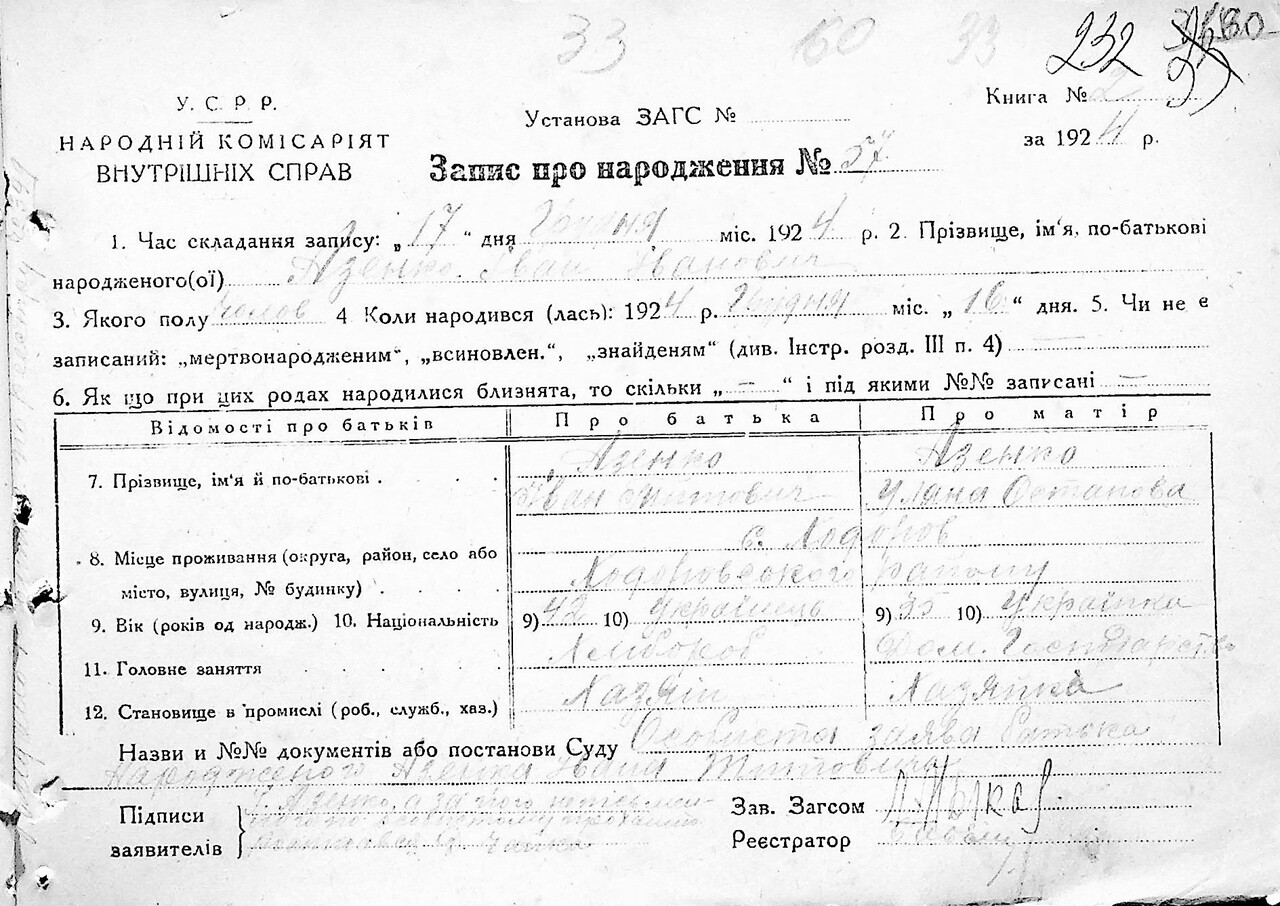 33 60 33 232
У. С. Р. Р.
НАРОДНІЙ КОМІСАРІЯТ
ВНУТРІШНІХ СПРАВ
Установа ЗАГС №
Книга № 2
за 1924 р.
Запис про народження № 57
1. Час складання запису: „17“ дня Грудня міс. 1924 р. 2. Прізвище, ім'я, по-батькові
народженого(ої) Азенко Іван Іванович
3. Якого полу чолов 4 Коли народився (лась): 1924 р. Грудня міс. „16“ дня. 5. Чи не е
записаний: „мертвонародженим“, „всиновлен.“, „знайденям“ (див. Інстр. розд. III п. 4)
6. Як що при цих родах народилися близнята, то скільки „ — “ і під якими №№ записані —
Відомості про батьків Про батька Про матір
7. Прізвище, ім'я й по-батькові . Азенко Азенко
Іван Титович Уляна Остапова
8. Місце проживання (округа, район, село або с. Ходоров
місто, вулиця, № будинку) . Ходоровського району
9. Вік (років од народж.) 10. Національність 9) 42 10) Українець 9) 35 10) Українка
11. Головне заняття Хлібороб Дом. Господарство
12. Становище в промислі (роб., служб., хаз.) Хазяїн Хазяйка
Назви и №№ документів або постанови Суду Особиста заява батька
народженого Азенка Івана Титовича
Підписи
заявителів
І. Азенко, а за його неписьмен-
Зав. Загсом
Реєстратор